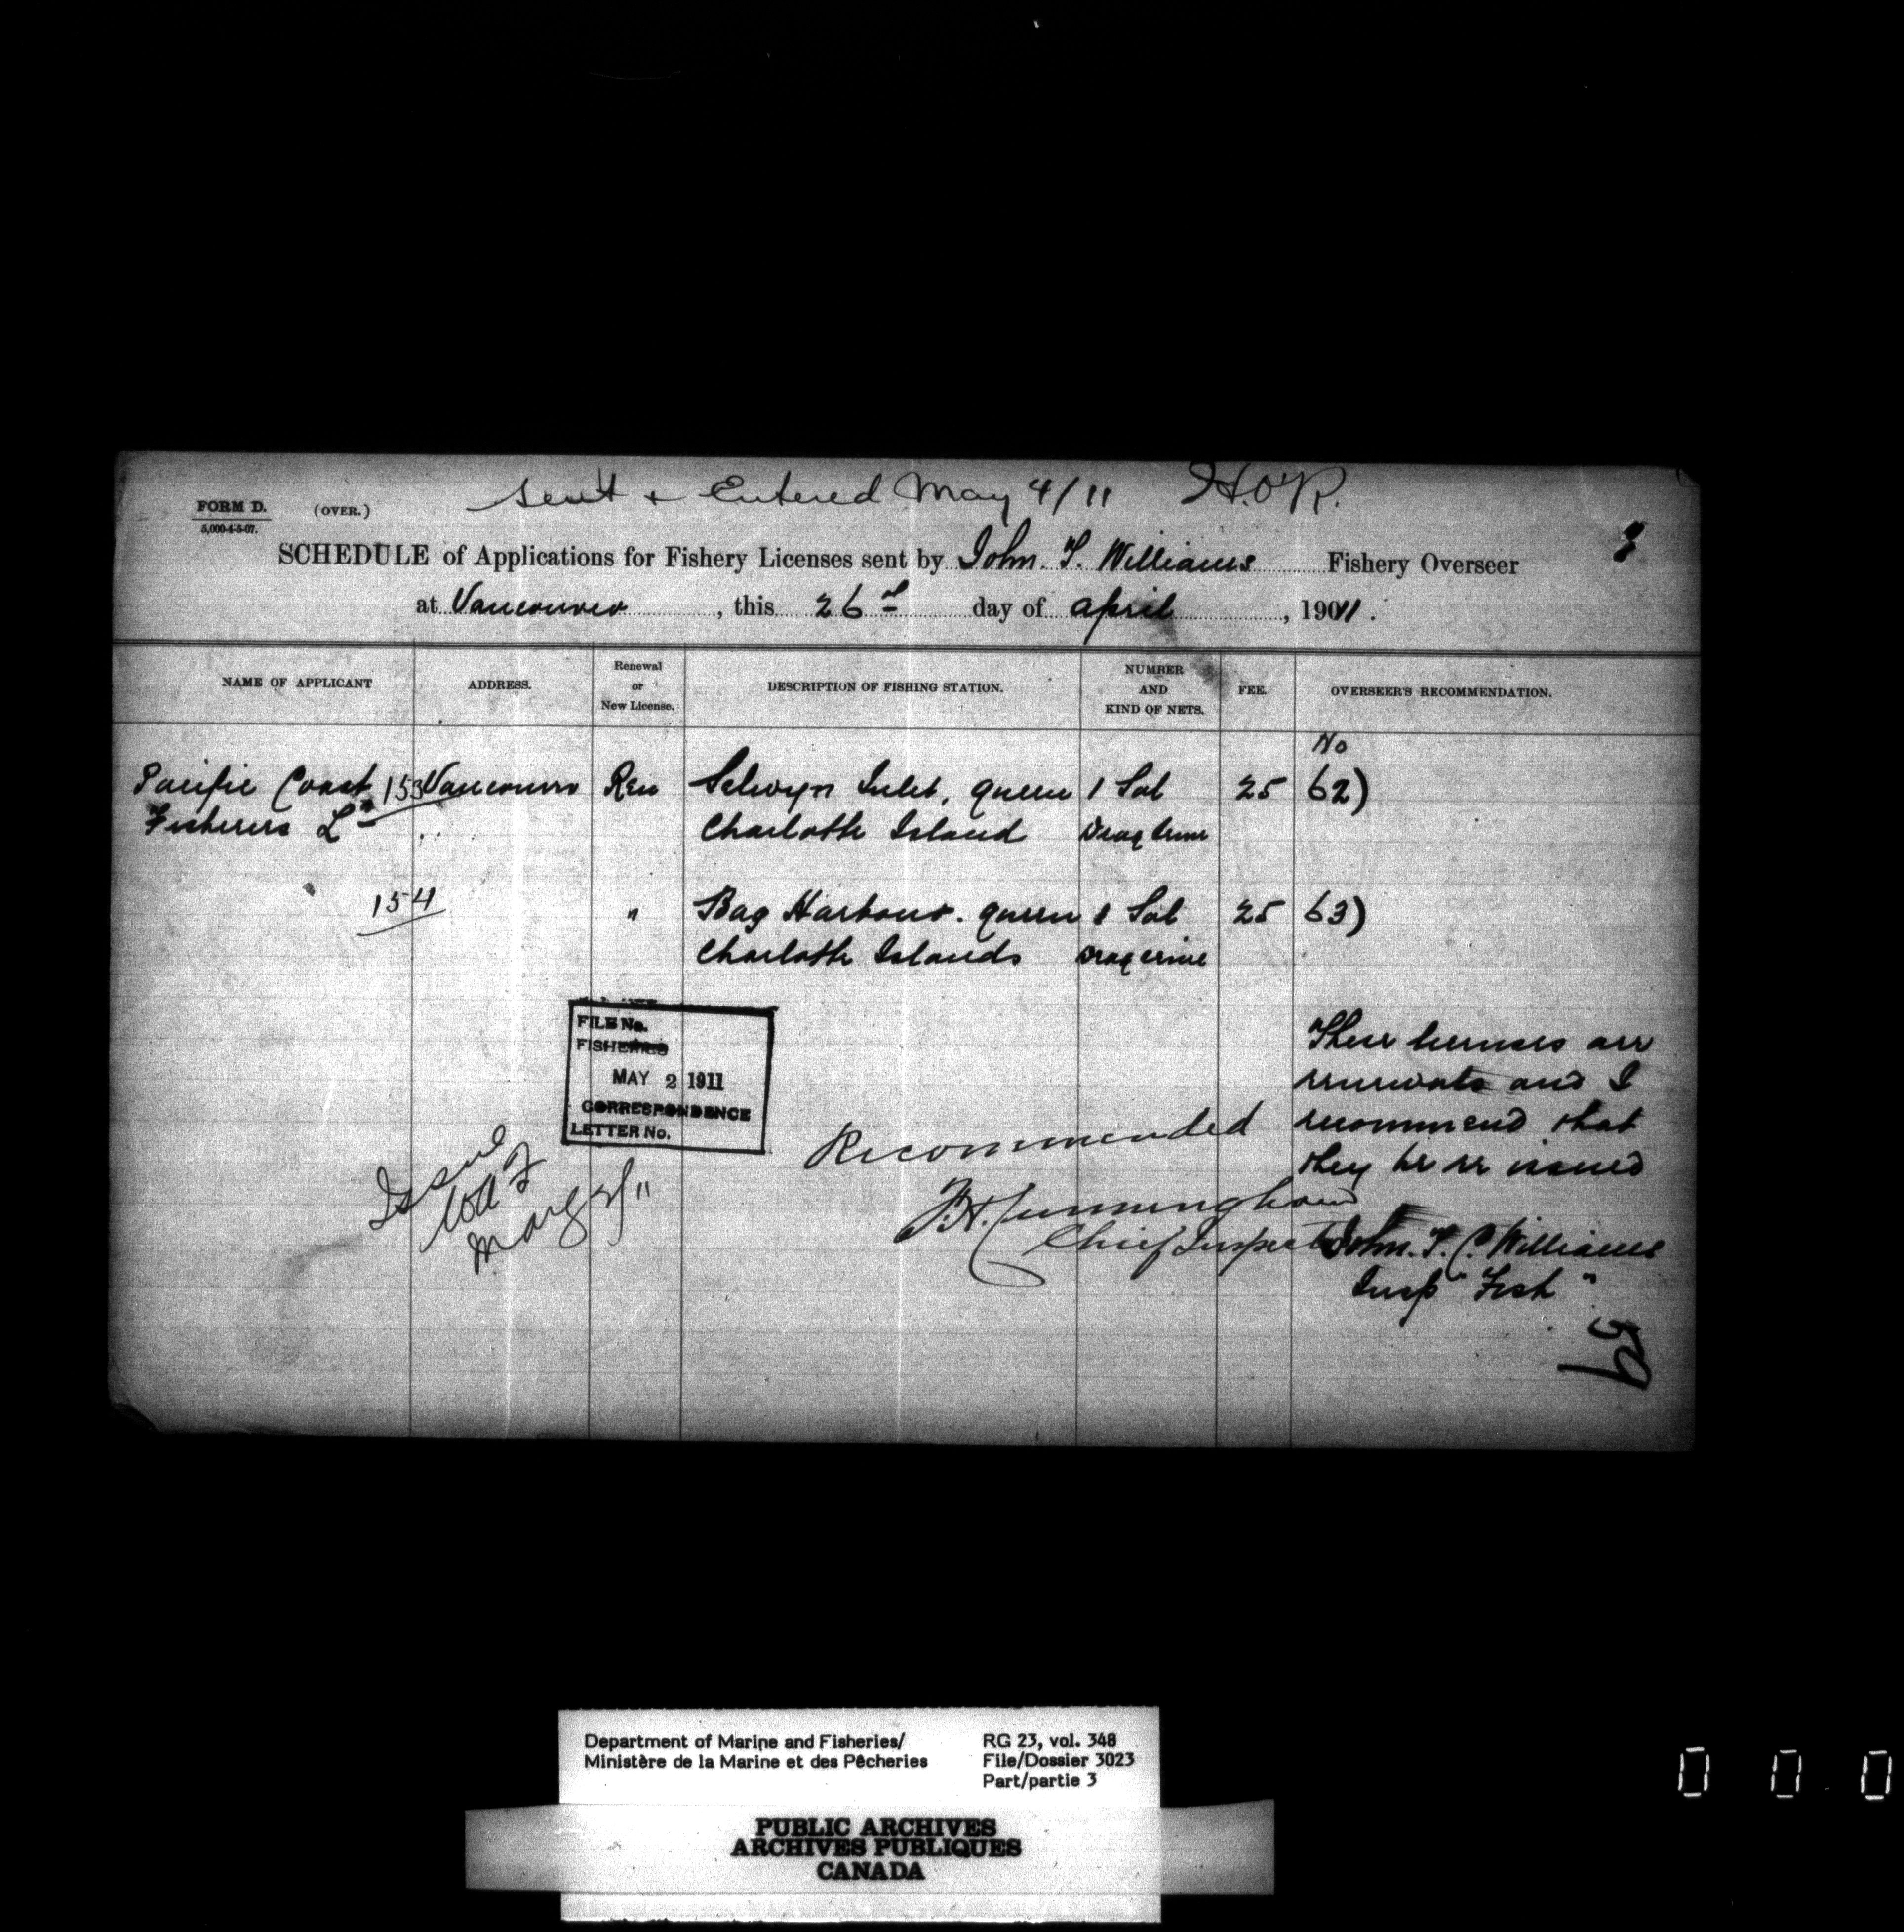 sent & Entered May 4/11 H.O'R.
FORM D. (OVER.)
5,000-4-5-07.
3
SCHEDULE of Applications for Fishery Licenses sent by John. T. Williams Fishery Overseer
at Vancouver, this 26th day of April, 1911.
NAME OF APPLICANT ADDRESS. Renewal or New License. DESCRIPTION OF FISHING STATION. NUMBER AND KIND OF NETS. FEE. OVERSEER'S RECOMMENDATION.
No
Pacific Coast 153 Vancouver Ren Selwyn Inlet, Queen 1 Sal 25 62)
Fisheries Ld Charlotte Island Drag seine
154 " Bag Harbour. Queen 1 Sal 25 63)
Charlotte Islands Drag seine
FILE No.
FISHERIES
MAY 2 1911
CORRESPONDENCE
LETTER No.
These licenses are
renewals and I
recommend that
they be re issued
Recommended
F.H. Cunningham
Chief Inspector
John. T. C. Williams
Insp "Fish"
Issue
May 3/11
59
Department of Marine and Fisheries/
Ministère de la Marine et des Pêcheries
RG 23, vol. 348
File/Dossier 3023
Part/partie 3
PUBLIC ARCHIVES
ARCHIVES PUBLIQUES
CANADA
0 0 0